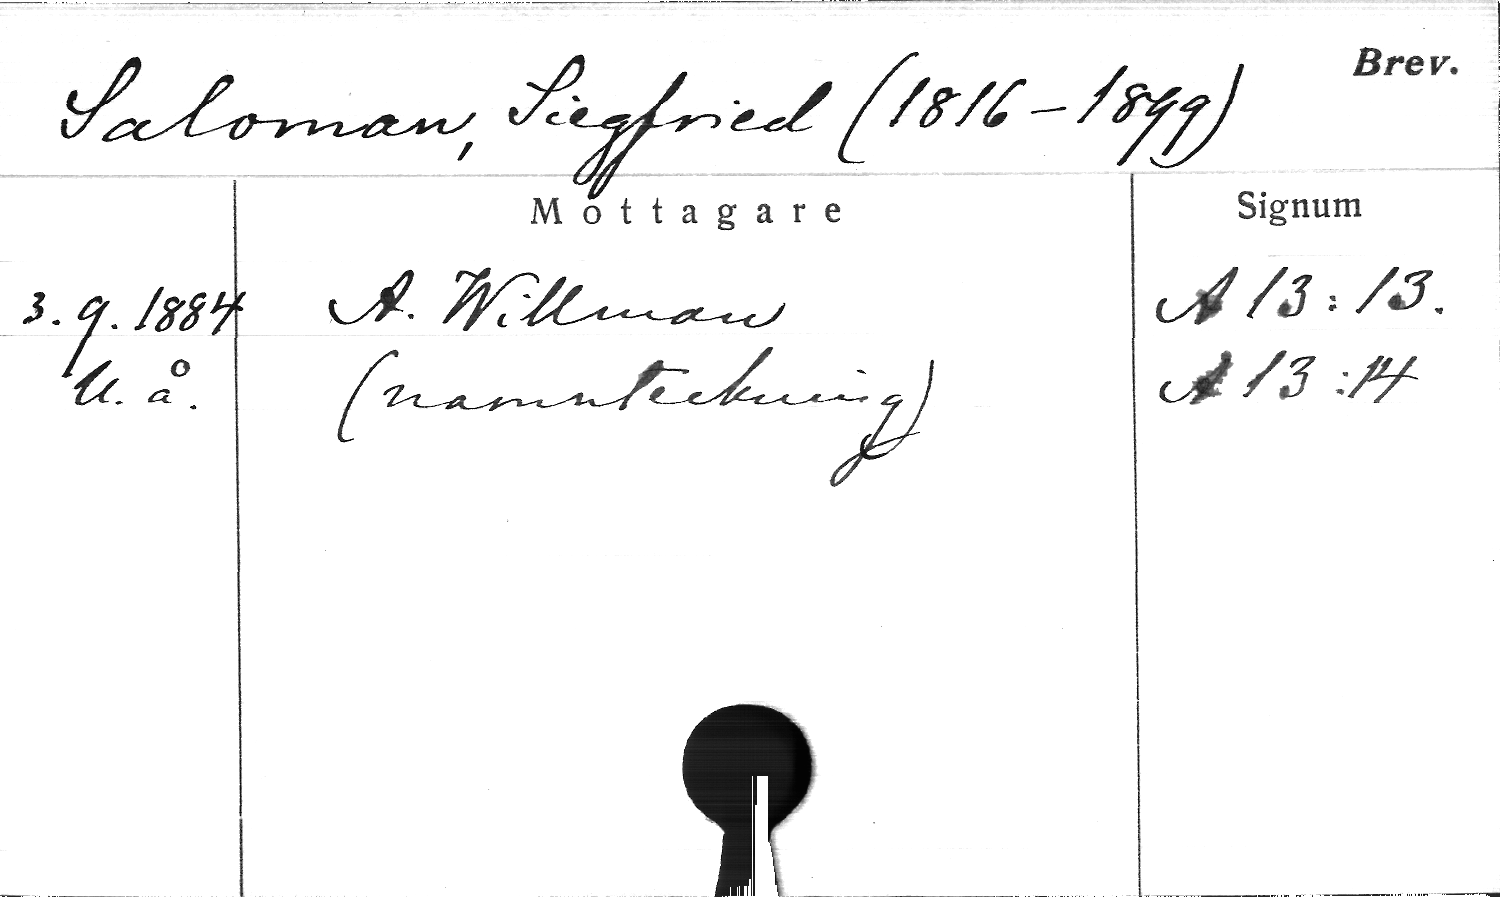 Brev.
Saloman, Siegfried (1816-1899)
Mottagare
Signum
3.9.1884 A. Willman A 13:13.
U. å. (namnteckning) A 13:14